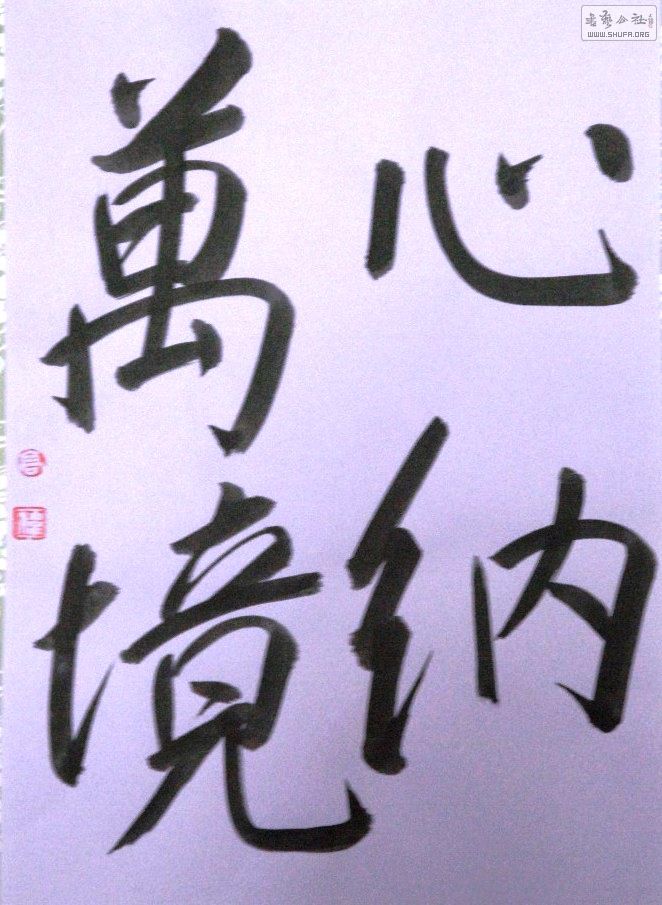 心纳
萬境
書藝公社
WWW.SHUFA.ORG